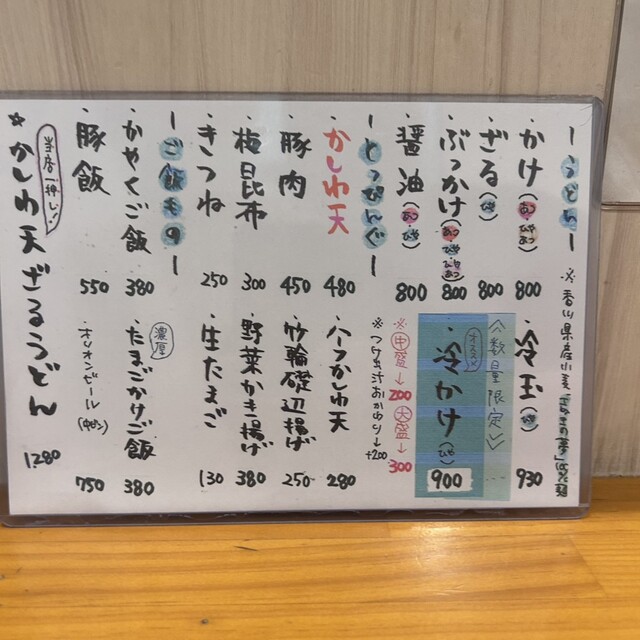 ーうどんー
※香川県産小麦「さぬきの夢」100%麺
・かけ(あつ・ひやあつ) 800
・ざる(ひや) 800
・ぶっかけ(あつ・ひや・ひやあつ) 800
・醤油(あつ・ひや) 800
・冷玉(ひや) 930
数量限定
オススメ
・冷かけ(ひや) 900
※中盛→200 大盛→300
ーとっぴんぐー
※つけ汁おかわり→+200
・かしわ天 480
・豚肉 450
・梅昆布 300
・きつね 250
・ハーフかしわ天 280
・竹輪磯辺揚げ 250
・野菜かき揚げ 380
・生たまご 130
ーご飯ものー
・かやくご飯 380
・豚飯 550
濃厚
・たまごかけご飯 380
・オリオンビール(中ビン) 750
当店一押し!
★かしわ天ざるうどん 1280